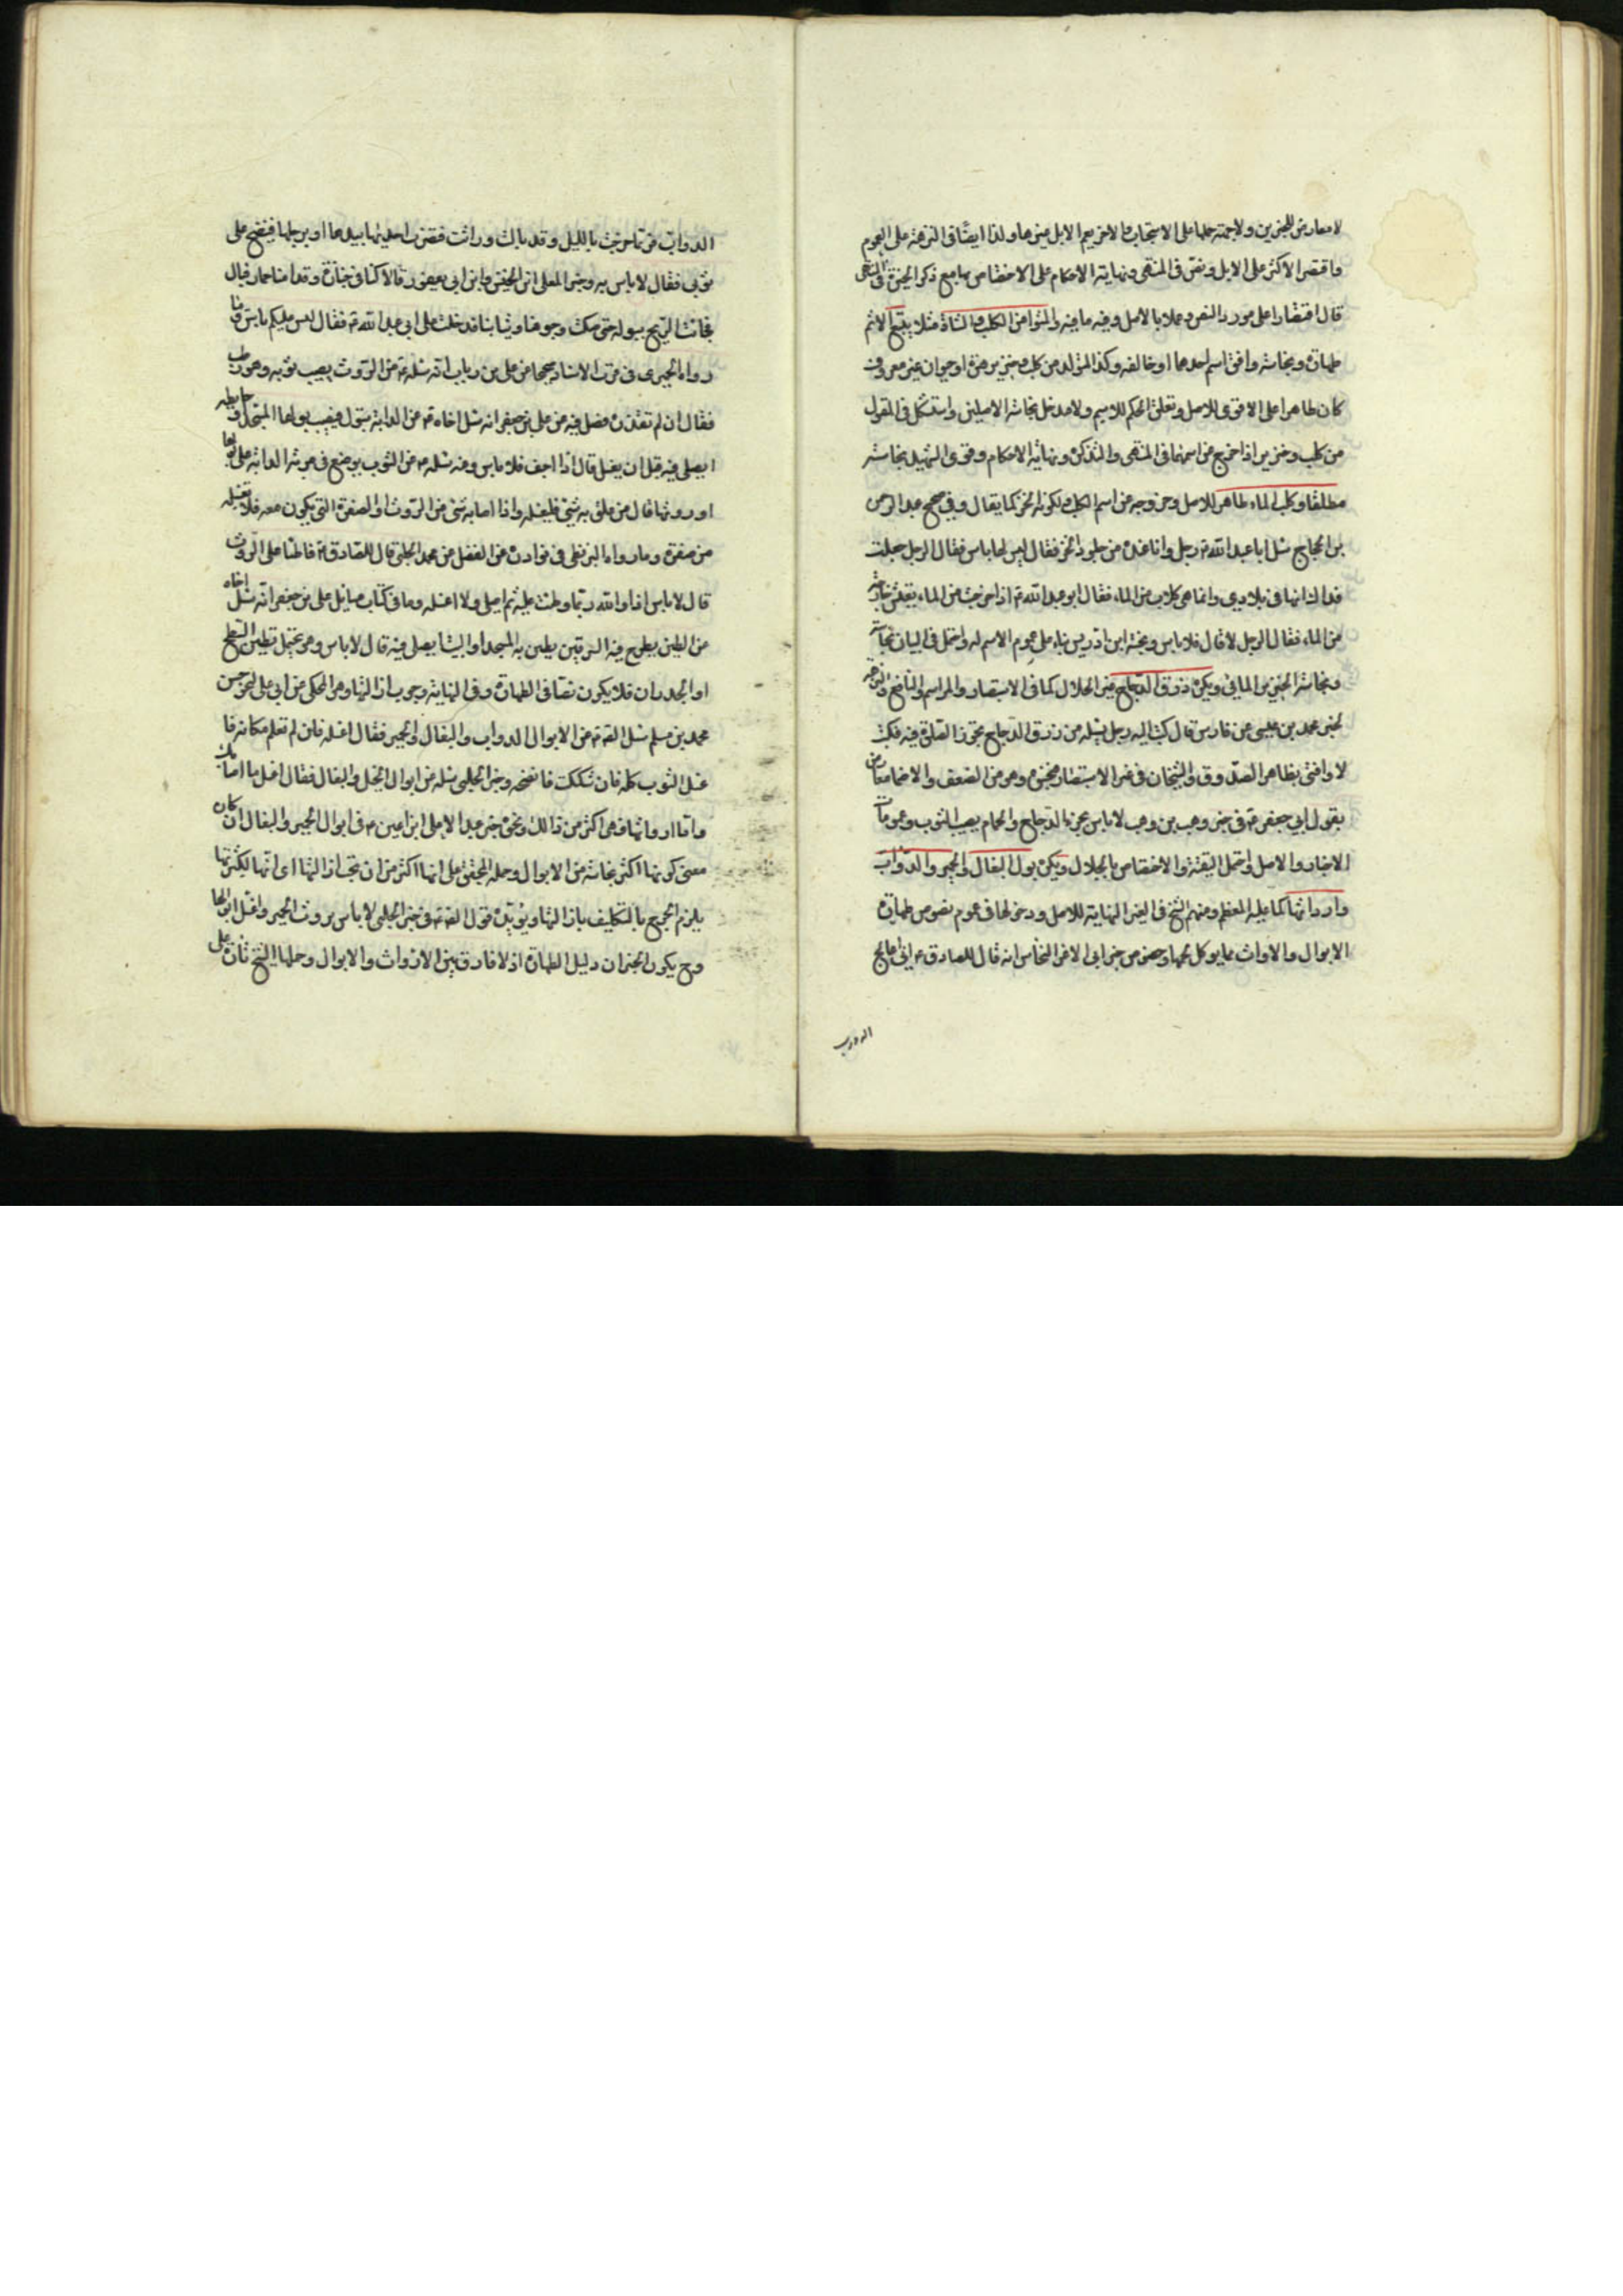 لا معارض للخبرين ولا جهة حملها على الاستحباب والاخر يعم الابل وغيرها ولذا ايضا في النزهة على العموم
واقتصر الاكثر على الابل ونص في المنتهى ونهاية الاحكام على الاختصاص بها مع ذكر الخبرين في المنتهى
قال اقتصارا على مورد النص وعملا بالاصل وفيه ما فيه والمتولد من الكلب والشاة مثلا يتبع الاسم
طهارة ونجاسة وافق اسم احدهما او خالفه وكذا المتولد من كلب وخنزير وهرة او حيوان غير معروف
كان طاهرا على الاقوى للاصل وتعلق الحكم للاسم ولا مدخل نجاسة الاصلين واستشكل في المتولد
من كلب وخنزير اذا خرج عن اسمهما في المنتهى والتذكرة ونهاية الاحكام وقوى الشهيد نجاسته
مطلقا وكلب الماء طاهر للاصل وخروجه عن اسم الكلب ولكونه الخز كما يقال وفي صحيح عبد الرحمن
بن الحجاج سئل ابا عبد الله ع رجل وانا عنده عن جلود الخز فقال ليس لها باس فقال الرجل جعلت
فداك انها في بلادي وانما هي كلاب من الماء فقال ابو عبد الله ع اذا خرجت من الماء يعيش خارجة
من الماء فقال الرجل لا قال فلا باس ونجسه ابن ادريس بناء على عموم الاسم له واحتمل في البيان نجاسته
ونجاسة الخنزير المائي ويكره ذرق الدجاج غير الجلال كما في الاستبصار والمراسم والنافع والنزهة
لخبر محمد بن عيسى عن فارس قال كتب اليه رجل يسئله عن ذرق الدجاج تجوز الصلوة فيه فكتب
لا وافتى بظاهره الصدوق والشيخان في غير الاستبصار فنجسوه وهو من الضعف والاضمار معارض
بقول ابي جعفر ع في خبر وهب بن وهب لا باس بخرء الدجاج والحمام يصيب الثوب وعمومات
الاخبار والاصل واحتمل التقية والاختصاص بالجلال ويكره بول البغال والحمير والدواب
وارواثها كما عليه المعظم ومنهم الشيخ في الغير النهاية للاصل ودخولها في عموم نصوص طهارة
الابوال والارواث مما يوكل لحمها وخصوص خبر ابي الاغر النخاس انه قال للصادق ع اني اعالج
الدواب
الدواب فربما خرجت بالليل وقد بالت وراثت فتضرب احديها بيدها او برجلها فينضح على
ثوبي فقال لا باس به وخبر المعلى ابن الخنيس وابن ابي يعفور قالا كنا في جنازة وقدامنا حمار فبال
فجائت الريح ببوله حتى صكت وجوهنا وثيابنا فدخلنا على ابي عبد الله ع فقال ليس عليكم باس وما
رواه الحميري في قرب الاسناد صحيحا عن علي بن رئاب انه سئله ع عن الروث يصيب ثوبه وهو رطب
فقال ان لم تقذره فصل فيه وعن علي بن جعفر انه سئل اخاه ع عن الدابة تبول فيصيب بولها المسجد او حايطه
ايصلى فيه قبل ان يغسل قال اذا جف فلا باس وعنه سئله ع عن الثوب يوضع في مربط الدابة على بولها
او روثها قال ان علق به شئ فليغسله واذا اصابه شئ من الروث او الصفرة التي يكون معه فلا تغسله
من صفرة وما رواه البزنطي في نوادره عن المفضل عن محمد الحلبي قال للصادق ع فاطأ على الروث
قال لا باس انا والله ربما وطئت عليه ثم اصلي ولا اغسله وما في كتاب مسائل علي بن جعفر انه سئل اخاه
عن الطين يطرح فيه السرقين يطين به المسجد او البيت ايصلى فيه قال لا باس وهو يحتمل تطيين السطح
او الجدران فلا يكون نصا في الطهارة وفي النهاية وجوب ازالتها وهو المحكي عن ابي علي لخبر حسن
محمد بن مسلم سئل الصادق ع عن الابوال الدواب والبغال والحمير فقال اغسله فان لم تعلم مكانه فا
غسل الثوب كله فان شككت فانضحه وخبر الحلبي سئله عن ابوال الخيل والبغال فقال اغسل ما اصابك
واما ارواثها فهي اكثر من ذلك ونحوه خبر عبد الاعلى ابن اعين ع في ابوال الحمير والبغال ان كان
معنى كونها اكثر نجاسة من الابوال وحمله المحقق على انها اكثر من ان تجب ازالتها اي انها لكثرتها
يلزم الحرج بالتكليف بازالتها ويؤيده قول الصادق ع في خبر الحلبي لا باس بروث الحمير واغسل ابوالها
وح يكون الخبران دليل الطهارة اذ لا فارق بين الارواث والابوال وحملها الشيخ ثارة على